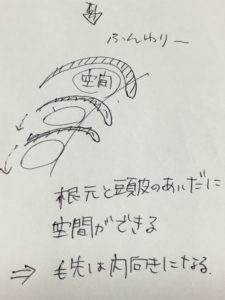 ふんわりー
空間
根元と頭皮のあいだに
空間ができる
⇒ 毛先は内向きになる